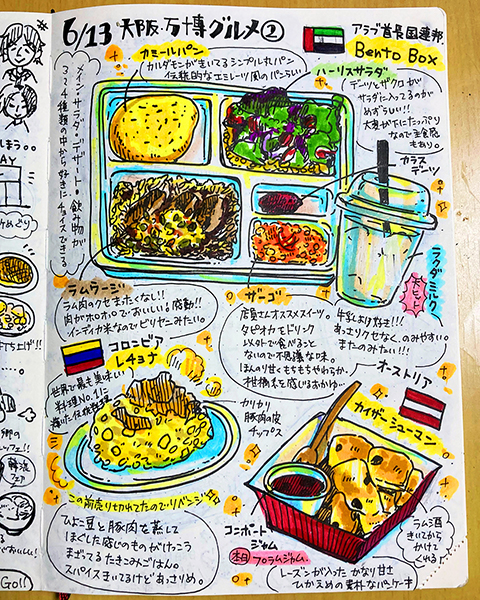 6/13 大阪・万博グルメ②
アラブ首長国連邦
Bento Box
カミールパン
カルダモンがきいてるシンプルなパン
伝統的なエミレーツ風のパンらしい
ハーリスサラダ
デーツとザクロが
サラダに入ってるのが
めずらしい!!
大麦が下にたっぷり
なので主食感
もあり。
カラス
デーツ
メイン・サラダ・デザート・飲み物が
3〜4種類の中から好きに
チョイスできる
ラクダミルク
ラムラージ
ラム肉のクセまったくない!!
肉がホロホロでおいしい感動!!
インディカ米なのでビリヤニみたい。
ザーゴ
店員さんオススメスイーツ。
タピオカもドリンク
以外で食べること
ないので不思議な味。
ほんのり甘くもちもちやわらか。
柑橘系を感じるおかゆ…
牛乳より好き!!!
あっさりクセなく、のみやすい
またのみたい!!!
コロンビア
レチョナ
世界で最も美味しい
料理No.1に
カリカリ
豚肉の皮
チップス
この前売り切れてたのでリベンジ
ひよこ豆と豚肉を蒸して
ほぐした感じのものがけっこう
まざってるたきこみごはん。
スパイスきいてるけどあっさりめ。
オーストリア
カイザーシューマン
コンポート
ジャム
本日プラムジャム。
ラム酒
きいてから
かけて
くれる!
レーズンが入った かなり甘さ
ひかえめの素朴なパンケーキ